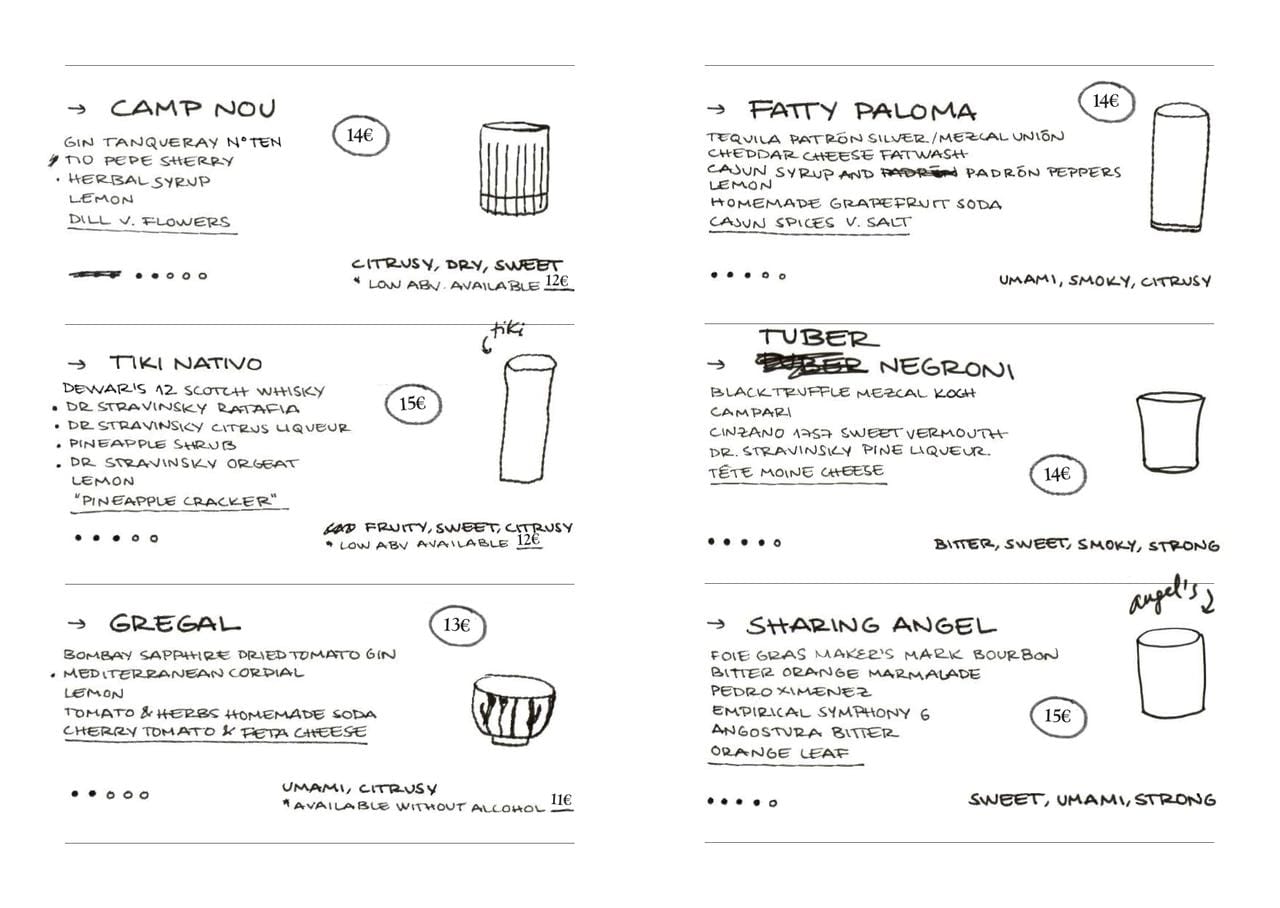 → CAMP NOU
14€
GIN TANQUERAY Nº TEN
TIO PEPE SHERRY
· HERBAL SYRUP
LEMON
DILL V. FLOWERS
CITRUSY, DRY, SWEET
* LOW ABV. AVAILABLE 12€
tiki
→ TIKI NATIVO
15€
DEWAR'S 12 SCOTCH WHISKY
· DR STRAVINSKY RATAFIA
· DR STRAVINSKY CITRUS LIQUEUR
· PINEAPPLE SHRUB
· DR STRAVINSKY ORGEAT
LEMON
"PINEAPPLE CRACKER"
FRUITY, SWEET, CITRUSY
* LOW ABV AVAILABLE 12€
→ GREGAL
13€
BOMBAY SAPPHIRE DRIED TOMATO GIN
· MEDITERRANEAN CORDIAL
LEMON
TOMATO & HERBS HOMEMADE SODA
CHERRY TOMATO & FETA CHEESE
UMAMI, CITRUSY
* AVAILABLE WITHOUT ALCOHOL 11€
→ FATTY PALOMA
14€
TEQUILA PATRÓN SILVER/MEZCAL UNIÓN
CHEDDAR CHEESE FATWASH
CAJUN SYRUP AND PADRÓN PEPPERS
LEMON
HOMEMADE GRAPEFRUIT SODA
CAJUN SPICES V. SALT
UMAMI, SMOKY, CITRUSY
TUBER
→ NEGRONI
BLACK TRUFFLE MEZCAL KOCH
CAMPARI
CINZANO 1757 SWEET VERMOUTH
DR. STRAVINSKY PINE LIQUEUR.
TÊTE MOINE CHEESE
14€
BITTER, SWEET, SMOKY, STRONG
angel's
→ SHARING ANGEL
FOIE GRAS MAKER'S MARK BOURBON
BITTER ORANGE MARMALADE
PEDRO XIMENEZ
EMPIRICAL SYMPHONY 6
ANGOSTURA BITTER
ORANGE LEAF
15€
SWEET, UMAMI, STRONG